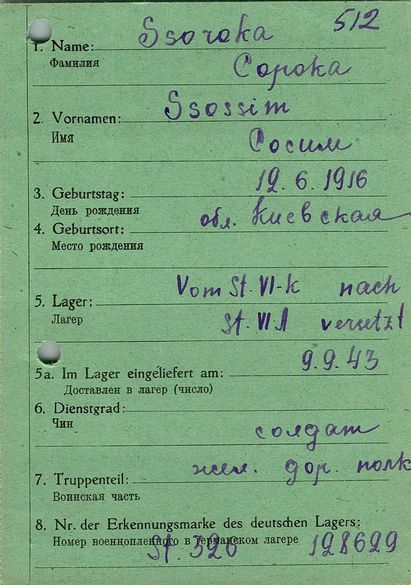 512
1. Name: Ssoroka
Фамилия Сорока
2. Vornamen: Ssossim
Имя Сосим
3. Geburtstag: 12.6.1916
День рождения
обл. Киевская
4. Geburtsort:
Место рождения
5. Lager: Vom St. VI-k nach
Лагер St. VI A versetzt
5a. Im Lager eingeliefert am: 9.9.43
Доставлен в лагер (число)
6. Dienstgrad:
Чин солдат
жел. дор. полк
7. Truppenteil:
Воинская часть
8. Nr. der Erkennungsmarke des deutschen Lagers:
Номер военнопленного в германском лагере
St. 326 128629